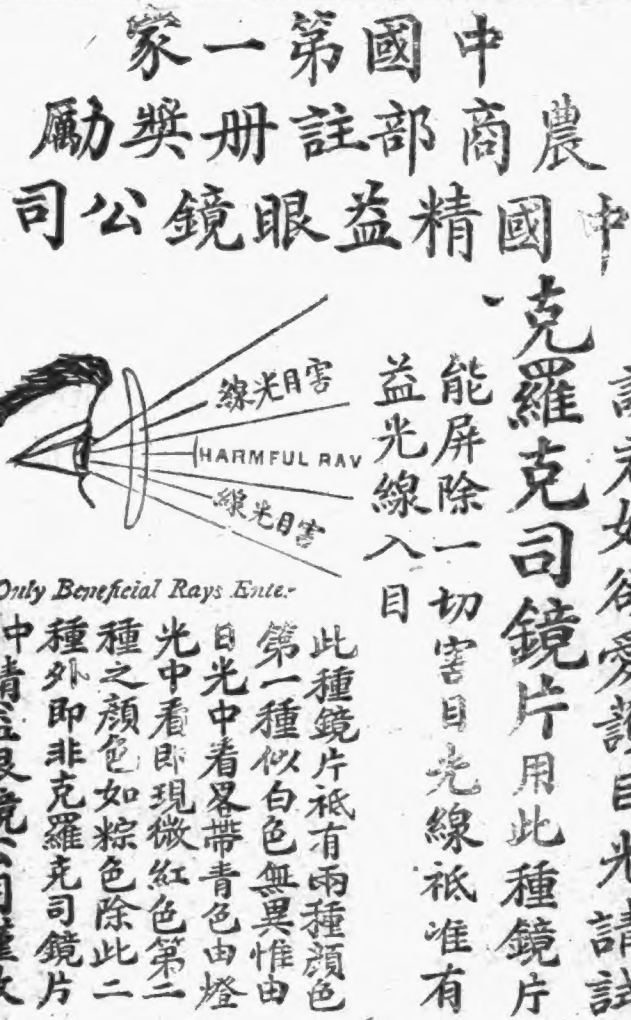 中國第一家
農商部註册獎勵
中國精益眼鏡公司
諸君如欲愛護目光請試
克羅克司鏡片用此種鏡片
能屏除一切害目光線祇准有
益光線入目
害目光線
HARMFUL RAY
害目光線
Only Beneficial Rays Enter
此種鏡片祇有兩種顏色
第一種似白色無異惟由
日光中看畧帶青色由燈
光中看即現微紅色第二
種之顏色如粽色除此二
種外即非克羅克司鏡片
中精益眼鏡公司謹啟